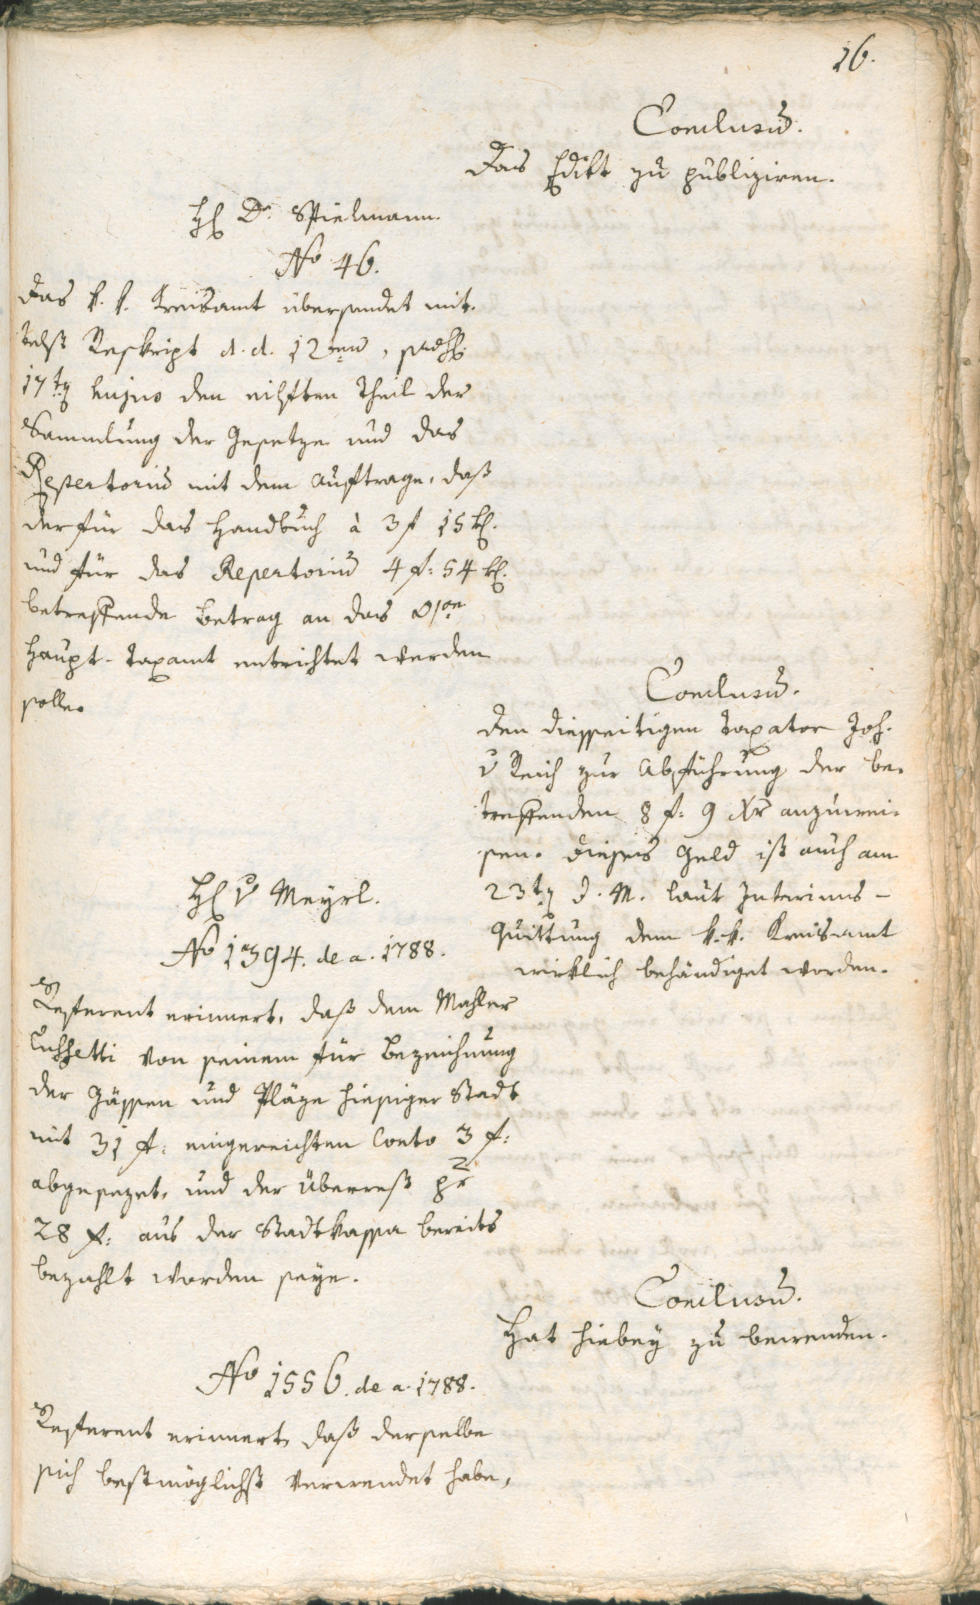 16.
Conclusum.
Das Edikt zu publiziren.
H Dr. Spielmann.
No 46.
Das k. k. Kreisamt übersendet mit-
telst Reskript d. d. 12ten, 
17ten hujus den eilften Theil der
Sammlung der Gesetze und das
Repertorium mit dem Auftrage, daß
der für das Handbuch à 3 f 15 k.
und für das Repertorium 4 f: 54 k.
betreffende Betrag an das
Haupt-Taxamt entrichtet werden
solle.
Conclusum.
Den diesseitigen Taxator Joh.
v Reich zur Abführung der be-
treffenden 8 f: 9 Xr anzuwei-
sen. Dieses Geld ist auch am
23ten d. M. laut Interims-
Quittung dem k. k. Kreisamt
wirklich behändiget worden.
H v Meyrl.
No 1394. de a. 1788.
Referent erinnert, daß dem Mahler
Cussetti von seinem für Bezeichnung
der Gässen und Pläze hiesiger Stadt
mit 31 f: eingereichten Conto 3 f:
abgesezet, und der Überrest pr
28 f: aus der Stadtkassa bereits
bezahlt worden seye.
Conclusum.
Hat hiebey zu bewenden.
No 1556. de a. 1788.
Referent erinnert, daß derselbe
sich bestmöglichst verwendet habe,